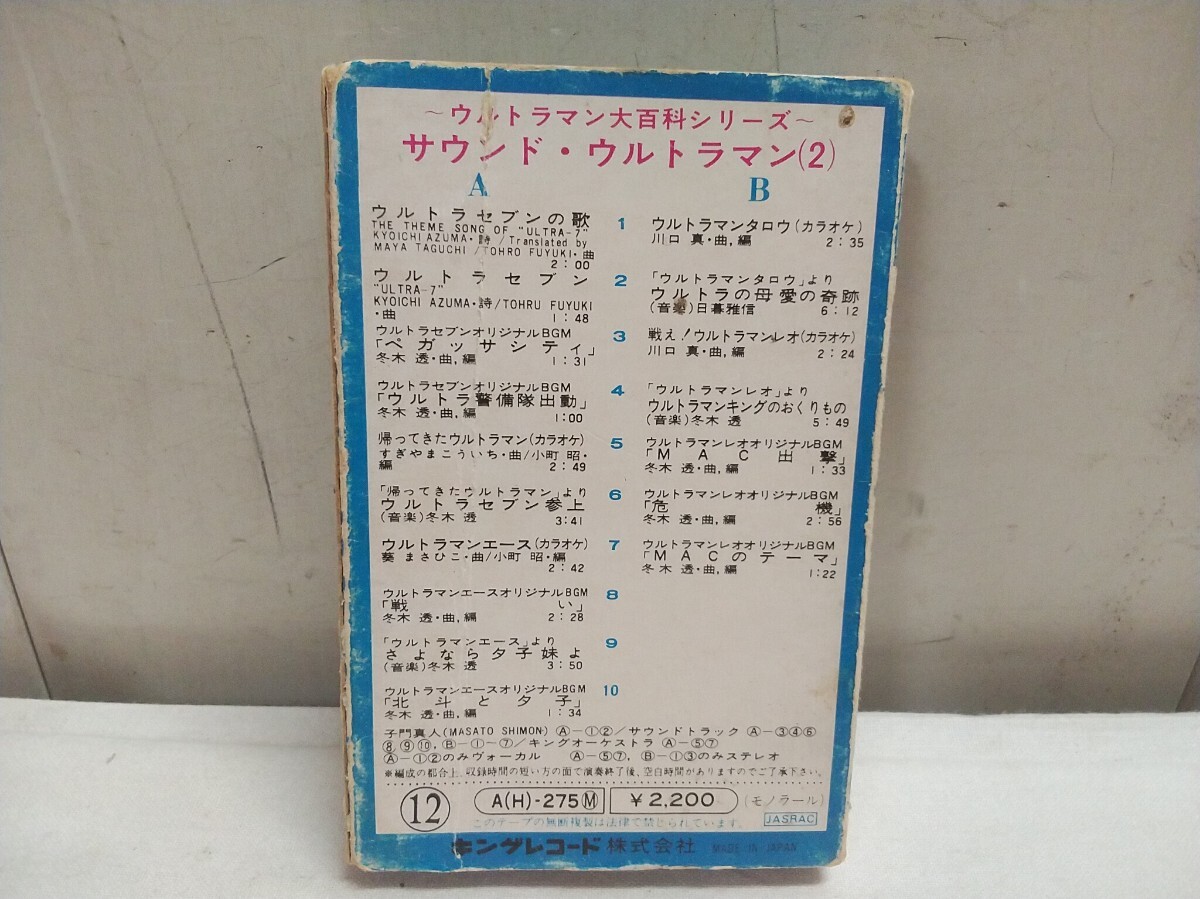 ～ウルトラマン大百科シリーズ～
サウンド・ウルトラマン(2)
A
ウルトラセブンの歌
THE THEME SONG OF "ULTRA-7"
KYOICHI AZUMA・詩/Translated by
MAYA TAGUCHI /TOHRO FUYUKI・曲
2：00
ウルトラセブン
"ULTRA-7"
KYOICHI AZUMA・詩/TOHRU FUYUKI
・曲 1：48
ウルトラセブンオリジナルBGM
「ペガッサシティ」
冬木 透・曲,編 1：31
ウルトラセブンオリジナルBGM
「ウルトラ警備隊出動」
冬木 透・曲,編 1：00
帰ってきたウルトラマン(カラオケ)
すぎやまこういち・曲/小町 昭・
編 2：49
「帰ってきたウルトラマン」より
ウルトラセブン参上
(音楽)冬木 透 3：41
ウルトラマンエース(カラオケ)
葵 まさひこ・曲/小町 昭・編
2：42
ウルトラマンエースオリジナルBGM
「戦い」
冬木 透・曲,編 2：28
「ウルトラマンエース」より
さよなら夕子妹よ
(音楽)冬木 透 3：50
ウルトラマンエースオリジナルBGM
「北斗と夕子」
冬木 透・曲,編 1：34
1
2
3
4
5
6
7
8
9
10
B
ウルトラマンタロウ(カラオケ)
川口 真・曲,編 2：35
「ウルトラマンタロウ」より
ウルトラの母愛の奇跡
(音楽)日暮雅信 6：12
戦え！ウルトラマンレオ(カラオケ)
川口 真・曲,編 2：24
「ウルトラマンレオ」より
ウルトラマンキングのおくりもの
(音楽)冬木 透 5：49
ウルトラマンレオオリジナルBGM
「MAC出撃」
冬木 透・曲,編 1：33
ウルトラマンレオオリジナルBGM
「危機」
冬木 透・曲,編 2：56
ウルトラマンレオオリジナルBGM
「MACのテーマ」
冬木 透・曲,編 1：22
子門真人(MASATO SHIMON) Ⓐ－①②/サウンドトラック Ⓐ－③④⑥
⑧,⑨⑩, Ⓑ－①－⑦/キングオーケストラ Ⓐ－⑤⑦
Ⓐ－①②のみヴォーカル Ⓐ－⑤⑦, Ⓑ－①③のみステレオ
※編成の都合上、収録時間の短い方の面で演奏終了後、空白時間がありますのでご了承下さい。
⑫ A(H)-275Ⓜ ￥2,200 (モノラール)
このテープの無断複製は法律で禁じられています。 JASRAC
キングレコード株式会社 MADE IN JAPAN